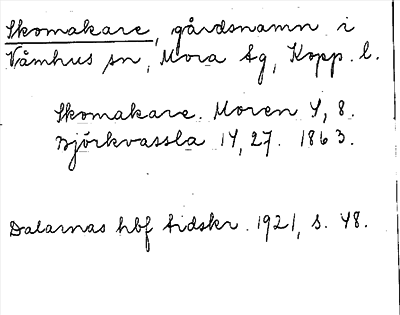 Skomakare, gårdsnamn i
Våmhus sn, Mora tg, Kopp. l.
Skomakare. Moren 4, 8.
Björkvassla 14, 27. 1863.
Dalarnas hbf tidskr. 1921, s. 48.